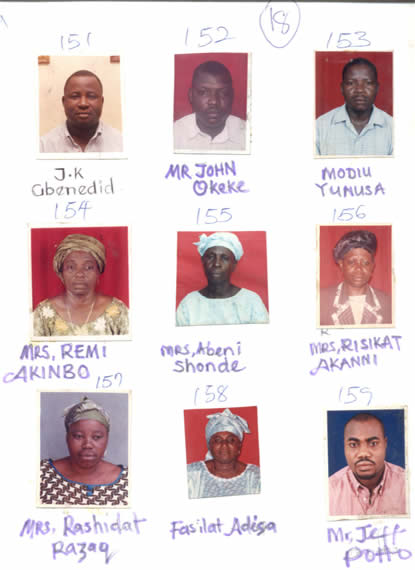 18
151
152
153
J.K
Gbenedid
MR JOHN
Okeke
MODIU
YUNUSA
154
155
156
MRS, REMI
AKINBO
MRS, Abeni
Shonde
MRS, RISIKAT
AKANNI
157
158
159
MRS, Rashidat
Razaq
Fasilat Adesa
Mr, Jeff
Potto